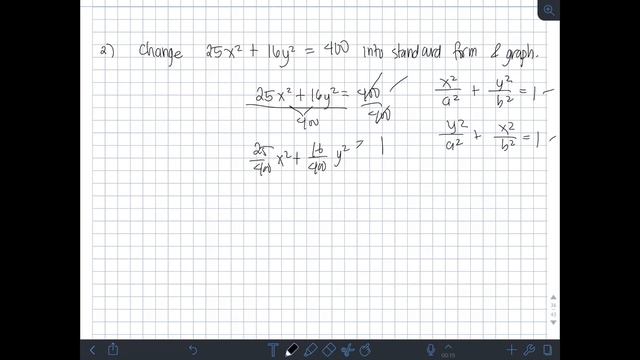 2) Change 25x² + 16y² = 400 into standard form & graph.
25x² + 16y² = 400
400 400
x²/a² + y²/b² = 1
y²/a² + x²/b² = 1
25/400 x² + 16/400 y² = 1
00:15
36
43